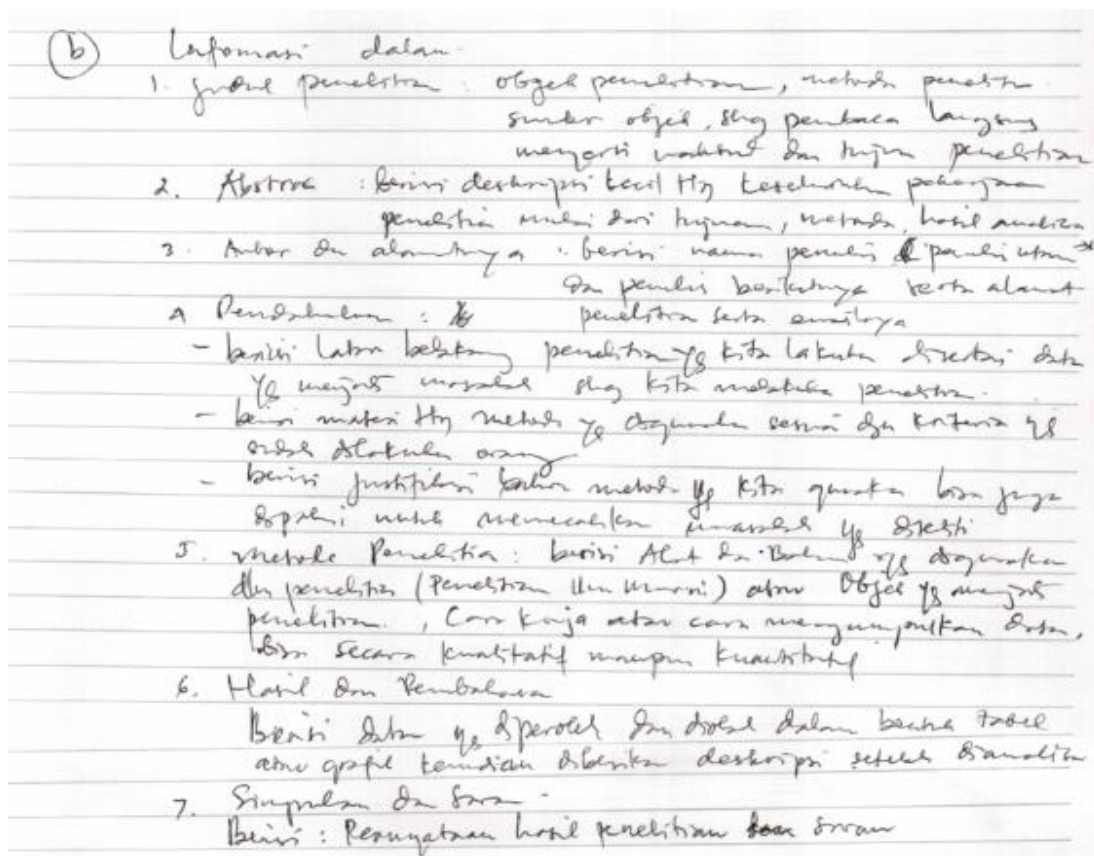 b Informasi dalam
1. Judul penelitian : objek penelitian, metode peneliti
sumber objek, shg pembaca langsung
mengerti maksud dan tujuan penelitian
2. Abstrak : berisi deskripsi kecil ttg keseluruhan pekerjaan
penelitian mulai dari tujuan, metode, hasil analisa
3. Author dan alamatnya : berisi nama penulis penulis utama
dan penulis berikutnya serta alamat
4 Pendahuluan : penelitian serta emailnya
- berisi latar belakang penelitian yg kita lakukan disertai data
yg menjadi masalah shg kita melakukan penelitian.
- berisi materi ttg metode yg digunakan sesuai dgn kriteria yg
sudah dilakukan orang
- berisi justifikasi bahwa metode yg kita gunakan bisa juga
dipakai untuk memecahkan masalah yg diteliti
5. Metode Penelitian : berisi Alat dan Bahan yg digunakan
dlm penelitian (Penelitian Ilmu ) atau Objek yg menjadi
penelitian , Cara kerja atau cara mengumpulkan data,
bisa secara kualitatif maupun kuantitatif
6. Hasil dan Pembahasan
Berisi data yg diperoleh dan diolah dalam bentuk tabel
atau grafik kemudian diberikan deskripsi setelah dianalisa
7. Simpulan dan Saran -
Berisi : Pernyataan hasil penelitian saran